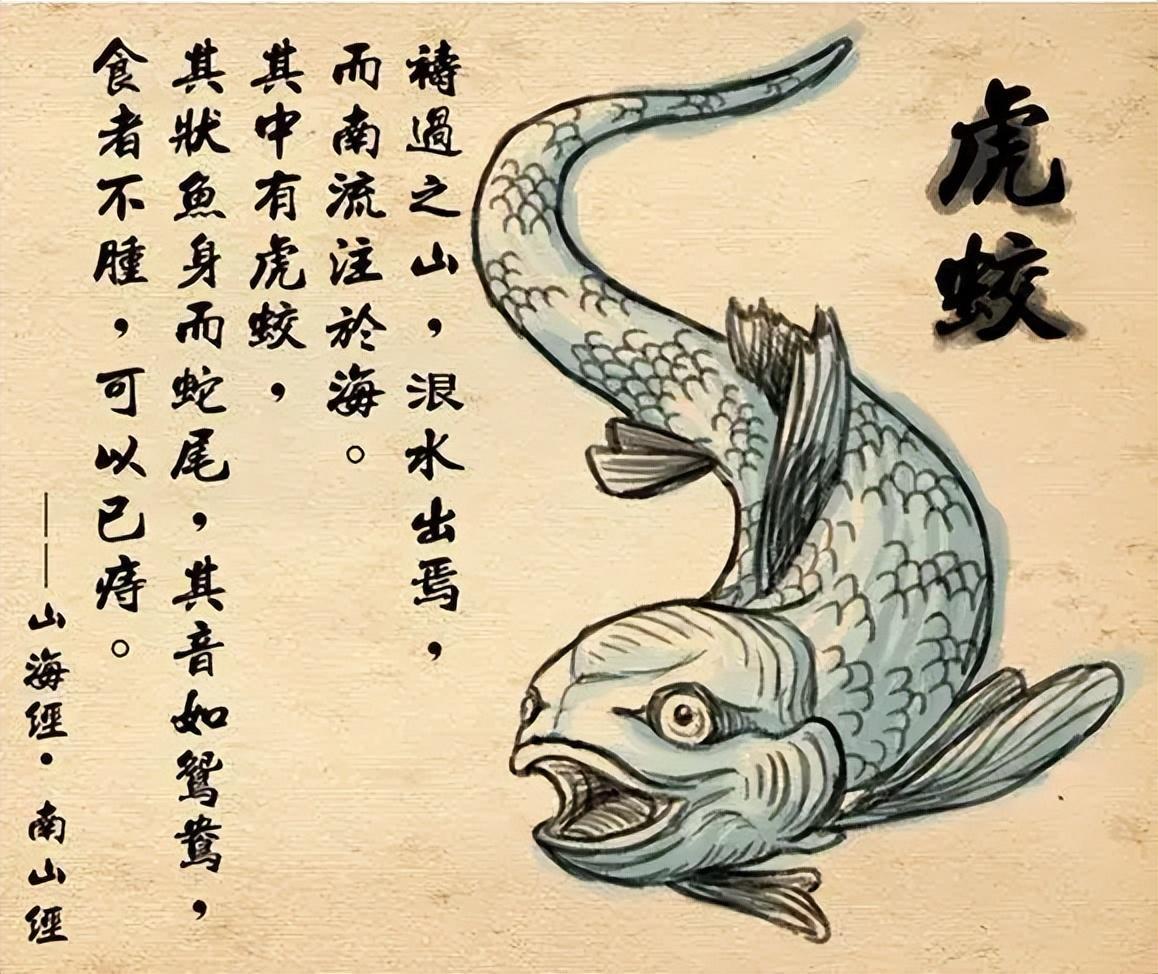 虎蛟
禱過之山，浪水出焉，
而南流注於海。
其中有虎蛟，
其狀魚身而蛇尾，其音如鴛鴦，
食者不腫，可以已痔。
——山海經·南山經